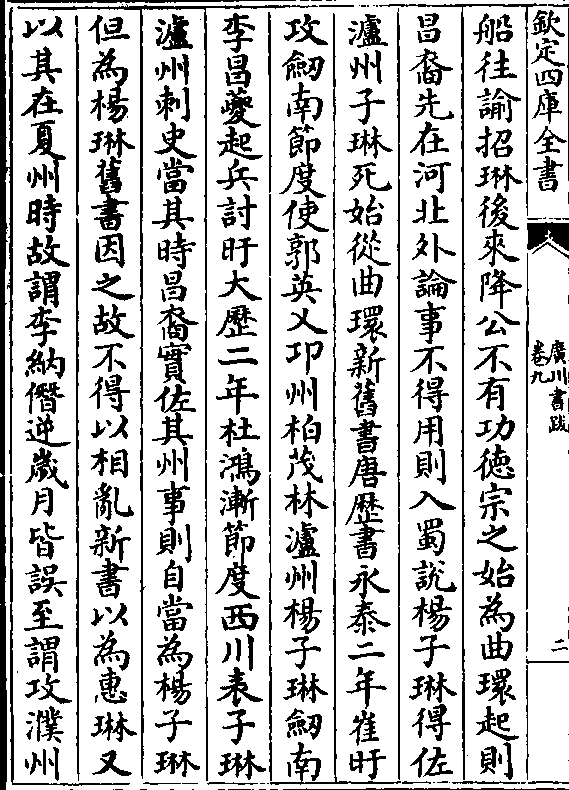 欽定四庫全書
廣川書跋
卷九
二
船往諭招琳後來降公不有功徳宗之始為曲環起則
昌裔先在河北外論事不得用則入蜀説楊子琳得佐
瀘州子琳死始從曲環新舊書唐歷書永泰二年崔旰
攻劒南節度使郭英乂卭州柏茂林瀘州楊子琳劒南
李昌夔起兵討旰大歷二年杜鴻漸節度西川表子琳
瀘州刺史當其時昌裔實佐其州事則自當為楊子琳
但為楊琳舊書因之故不得以相亂新書以為惠琳又
以其在夏州時故謂李納僭逆嵗月皆誤至謂攻濮州